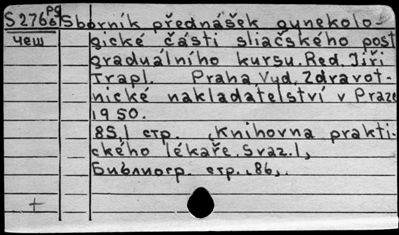 S 2766 pg Sborník přednášek gynekolo
чеш gické části sliačského post
graduálního kursu. Red. Jiří
Trapl. Praha Vyd. Zdravot-
nické nakladatelství v Praze
1950.
85,1 стр. „Knihovna prakti-
ckého lékaře. Svaz. 1„
Библиогр. стр. „86„.
+